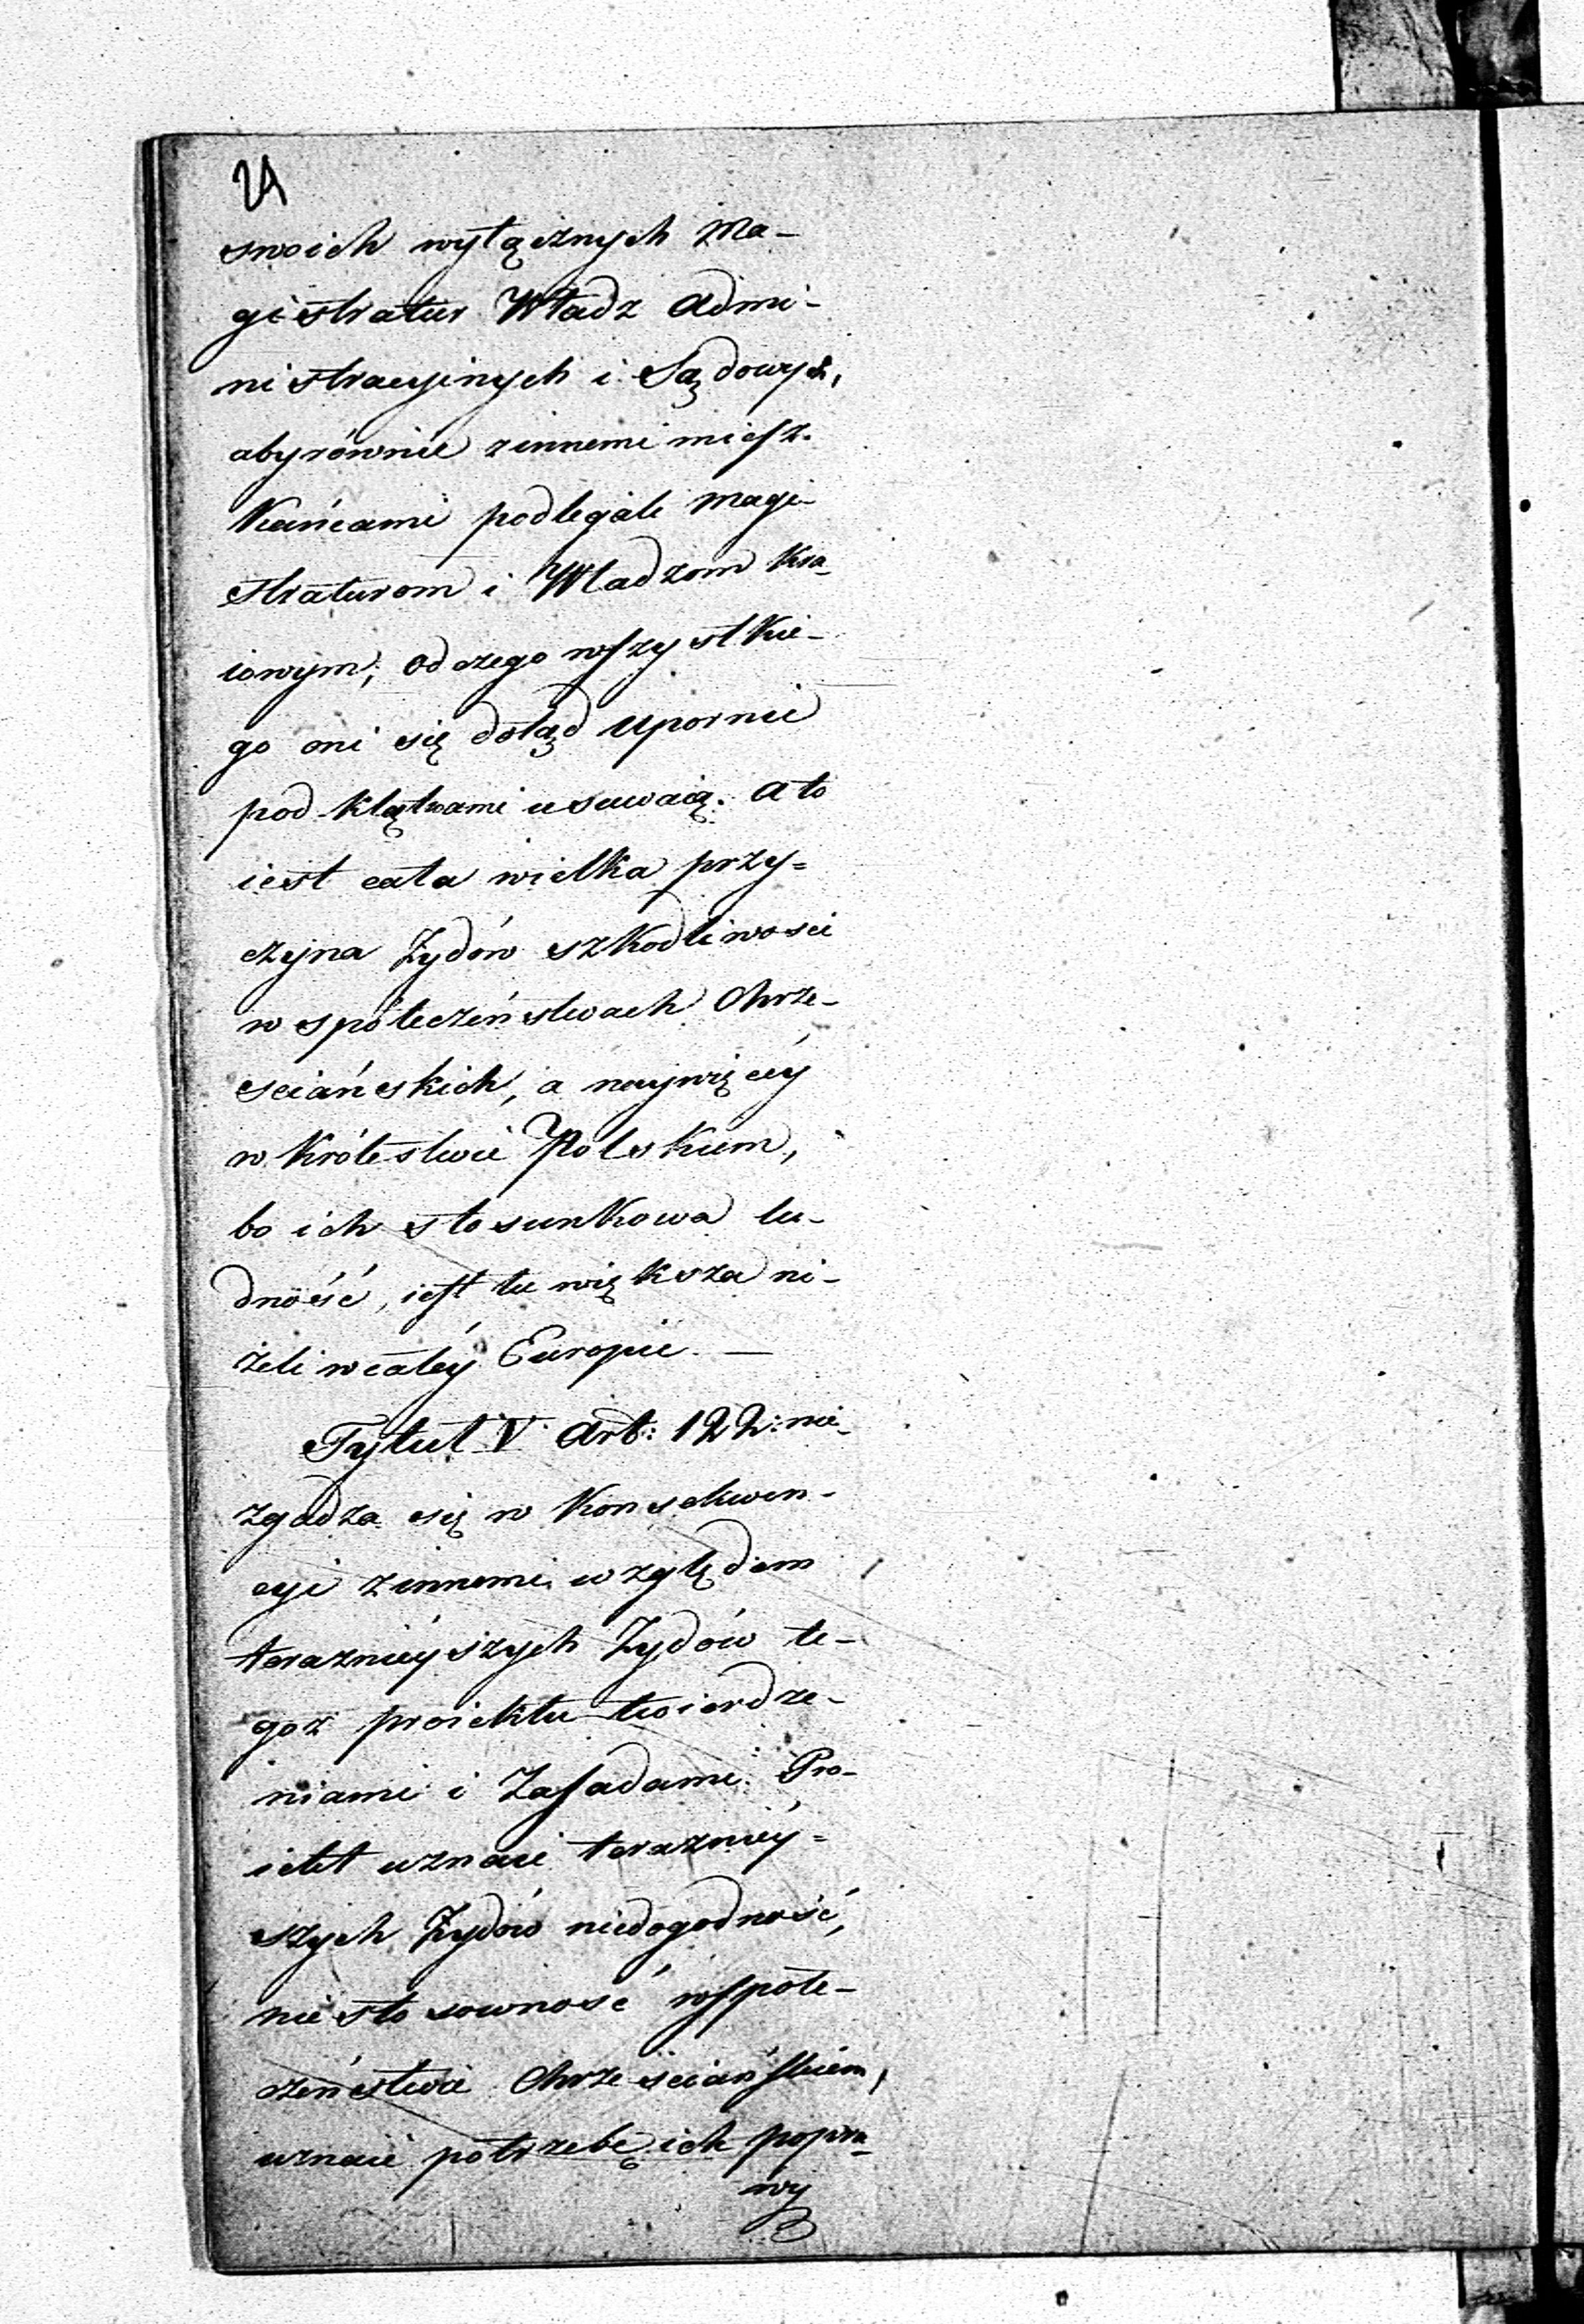 24
swoich wyłącznych Ma-
gistratur Władz Admi-
nistracyinych i Sądowych,
aby równie z innemi miesz-
kańcami podlegali Magi-
straturom i Władzom kra-
iowym; od czego wszystkie-
go oni się dotąd upornie
pod klątwami usuwaią. A to
iest cała wielka przy=
czyna Żydów szkodliwości
w społeczeństwach Chrze-
ściańskich, a naywięcéy
w Królestwie Polskiem,
bo ich stosunkowa lu-
dność, iest tu większa ni-
żeli w całéy Europie. —
Tytuł V Art: 122: nie
zgadza się w konsekwen-
cyi z innemi względem
teraznieyszych Żydów te-
goż proiektu twierdze-
niami i Zasadami. Pro-
iekt uznaie terazniéy=
szych Żydów niedogodność,
niestosowność w społe-
czeństwie Chrześciańskiem,
uznaie potrzebę ich popra-
wy